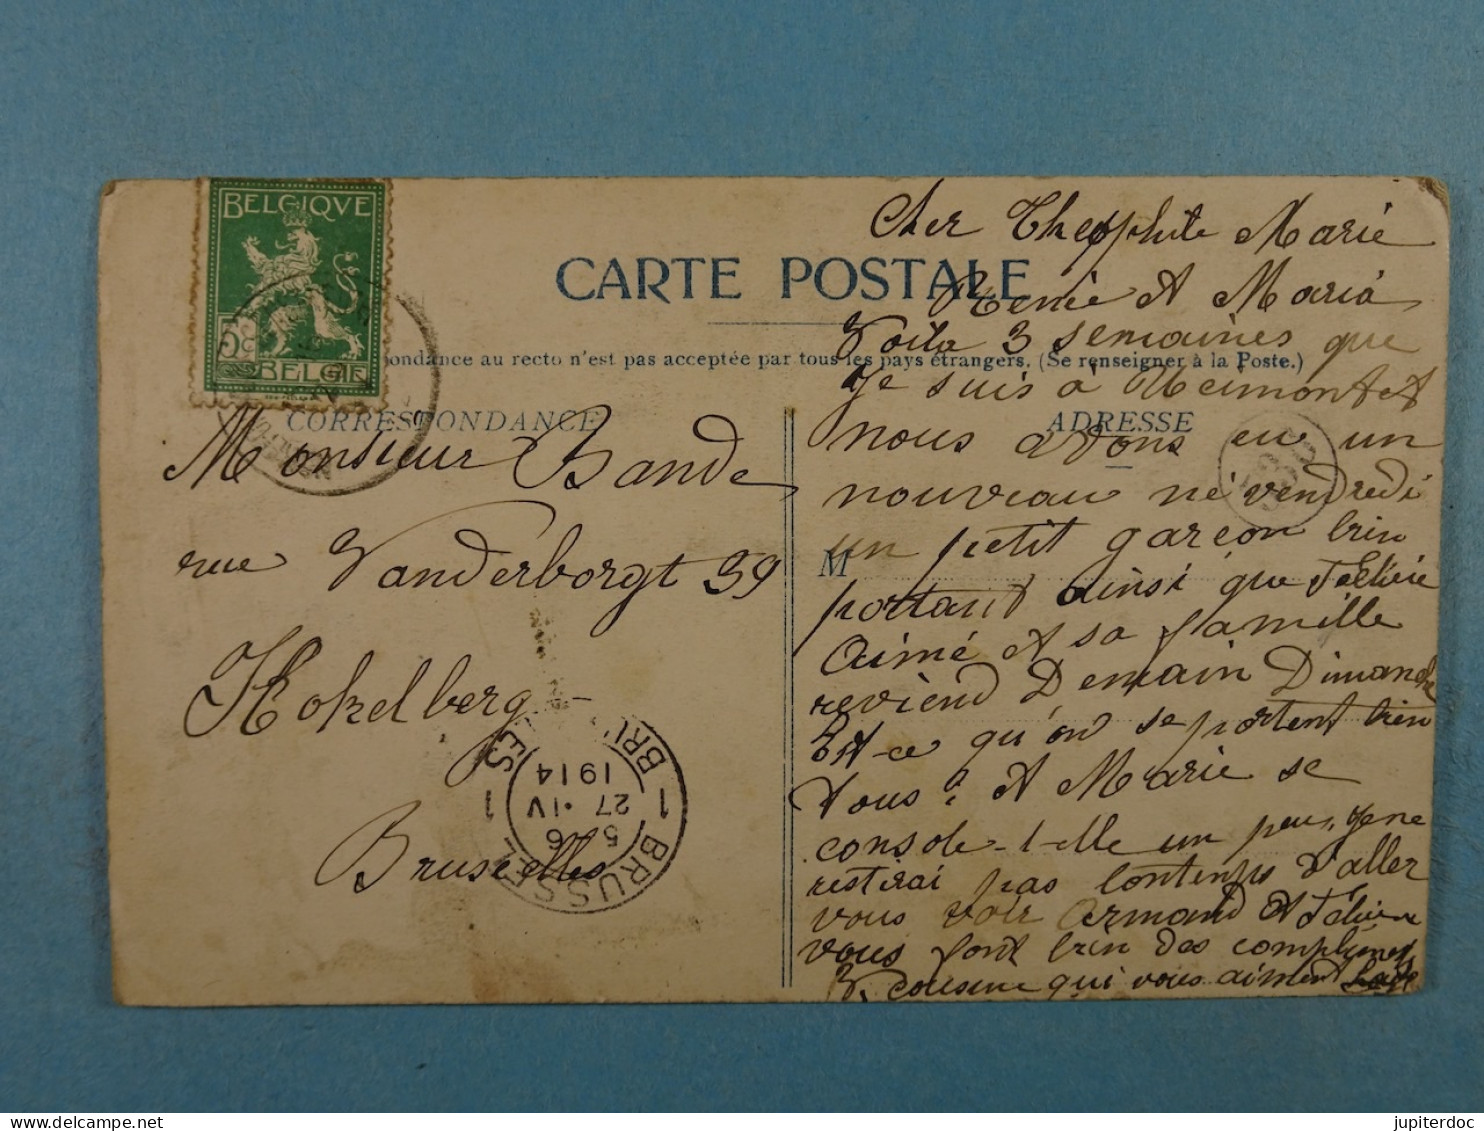 BELGIQVE
5c
BELGIE
CARTE POSTALE
ondance au recto n'est pas acceptée par tous les pays étrangers. (Se renseigner à la Poste.)
CORRESPONDANCE
ADRESSE
M
Monsieur Bande
rue Vanderborgt 39
Kokelberg
Bruxelles
1 BRUSSEL 1 BRU ES
5-6
27 · IV
1914
Cher Theophile Marie
Renie et Maria
Voila 3 semaines que
je suis a
nous avons eu un
nouveau ne vendredi
un petit garcon bien
portant ainsi que
Aimé et sa famille
reviend Demain Dimanche
Est-ce qu'on se portent bien
vous: et Marie se
console-t-elle un peu, je ne
restirai pas lontemps d'aller
vous voir Armand et
vous font bien des compliments
V. cousine qui vous aiment
jupiterdoc
www.delcampe.net